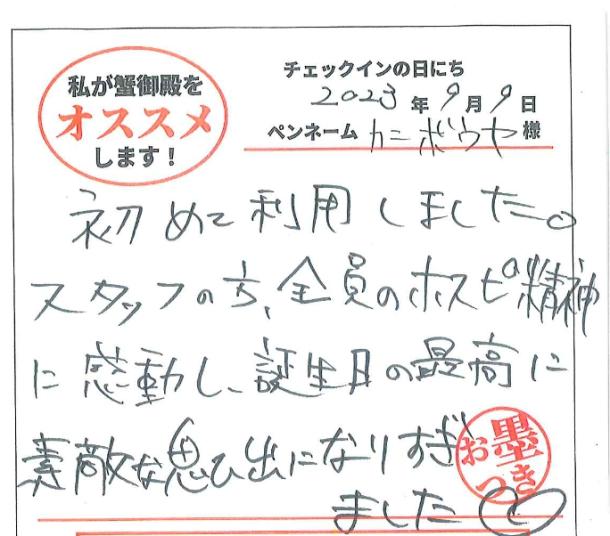 私が蟹御殿を
オススメ
します!
チェックインの日にち
2023年9月9日
ペンネーム カニボウヤ様
初めて利用しました。
スタッフの方、全員のホスピ精神
に感動し、誕生日の最高に
素敵な思ひ出になりすぎ
ました
お墨つき